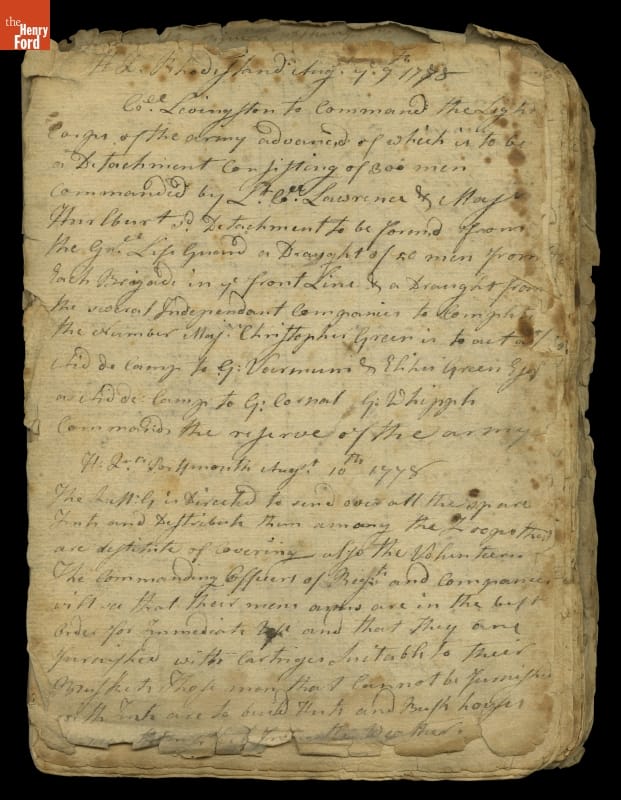 the
Henry
Ford
H Q. Rhod Island Aug. y. 9th 1778
Coll Levingston to Command the Light
Corps of the army advanced of which is to be
a Detachment Consisting of 300 men
Commanded by Lt. Coll Lawrence & Majr
Hurlburt sd. Detachment to be formd from
the Gnl Life Guard a Draught of 50 men from
Each Brigade in ye front Line & a Draught from
the several Independant Companies to Compleat
the Number Maj. Christopher Green is to act as
Aid de Camp to G: Varnum & Green Esqr
a Aid de Camp to G: G: Whipple
Commands the reserve of the army
H: Qrs Portsmouth Augt. 10th 1778
The is Directed to send over all the spare
Tents and Destribute them among the Troops that
are destitute of Covering also the Volunteers
The Commanding Officers of Regts and Companies
will see that their mens arms are in the best
order for Immediate Use and that they are
furnished with Cartriges Suitable to their
Muskets Those men that Can not be furnished
with Tents are to build Huts and Bush houses